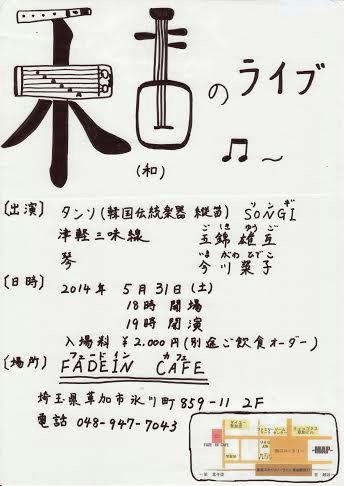 和のライブ
(和)
〔出演〕 タンソ(韓国伝統楽器 縦笛) SONGI
ソンギ
津軽三味線 五錦雄互
ごきんゆうご
琴 今川菜子
いまがわ
〔日時〕 2014年 5月31日(土)
18時 開場
19時 開演
入場料 ¥2,000円(別途ご飲食オーダー)
〔場所〕 FADEIN CAFE
フェードイン カフェ
埼玉県草加市氷川町859-11 2F
電話 048-947-7043
-MAP-